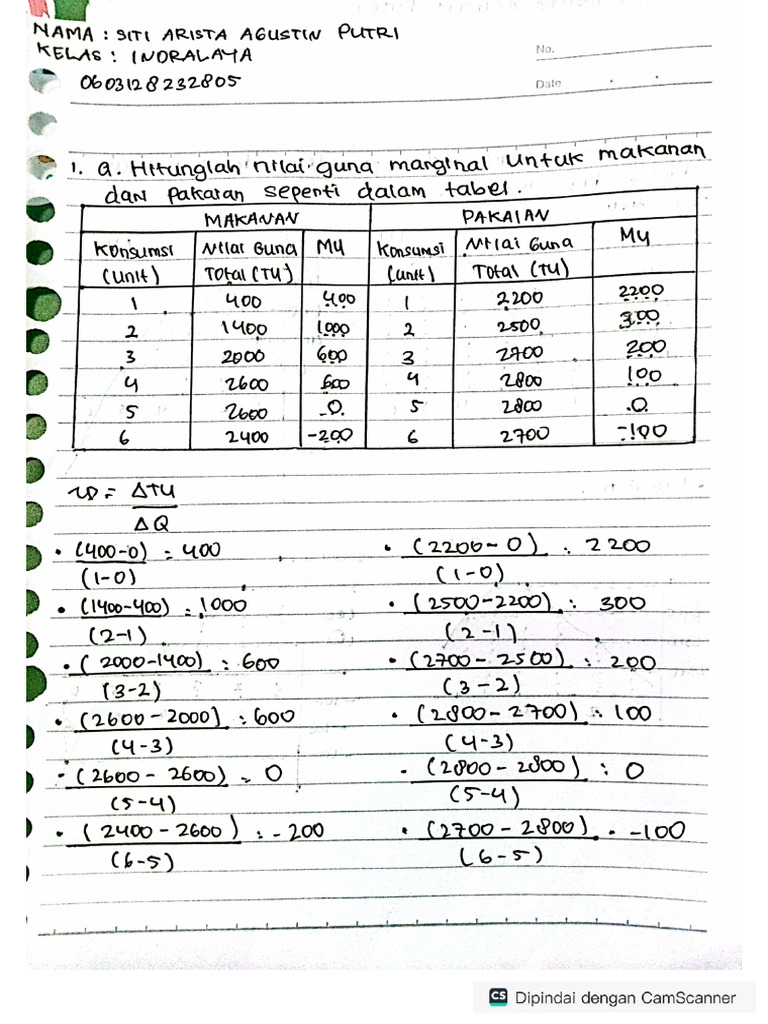 NAMA : SITI ARISTA AGUSTIN PUTRI
KELAS : INDRALAYA
0603128232805
No.
Date
1. a. Hitunglah nilai guna marginal untuk makanan
dan Pakaian seperti dalam tabel.
MAKANAN PAKAIAN
Konsumsi (unit) Nilai Guna Total (TU) MU Konsumsi (unit) Nilai Guna Total (TU) MU
1 400 400 1 2200 2200
2 1400 1000 2 2500 300
3 2000 600 3 2700 200
4 2600 600 4 2800 100
5 2600 0 5 2800 0
6 2400 -200 6 2700 -100
= ΔTU
ΔQ
• (400-0) = 400 • (2200-0) : 2200
(1-0) (1-0)
• (1400-400) = 1000 • (2500-2200) : 300
(2-1) (2-1)
• (2000-1400) : 600 • (2700-2500) : 200
(3-2) (3-2)
• (2600-2000) : 600 • (2800-2700) : 100
(4-3) (4-3)
• (2600-2600) = 0 • (2800-2800) : 0
(5-4) (5-4)
• (2400-2600) : -200 • (2700-2800) • -100
(6-5) (6-5)
CS Dipindai dengan CamScanner